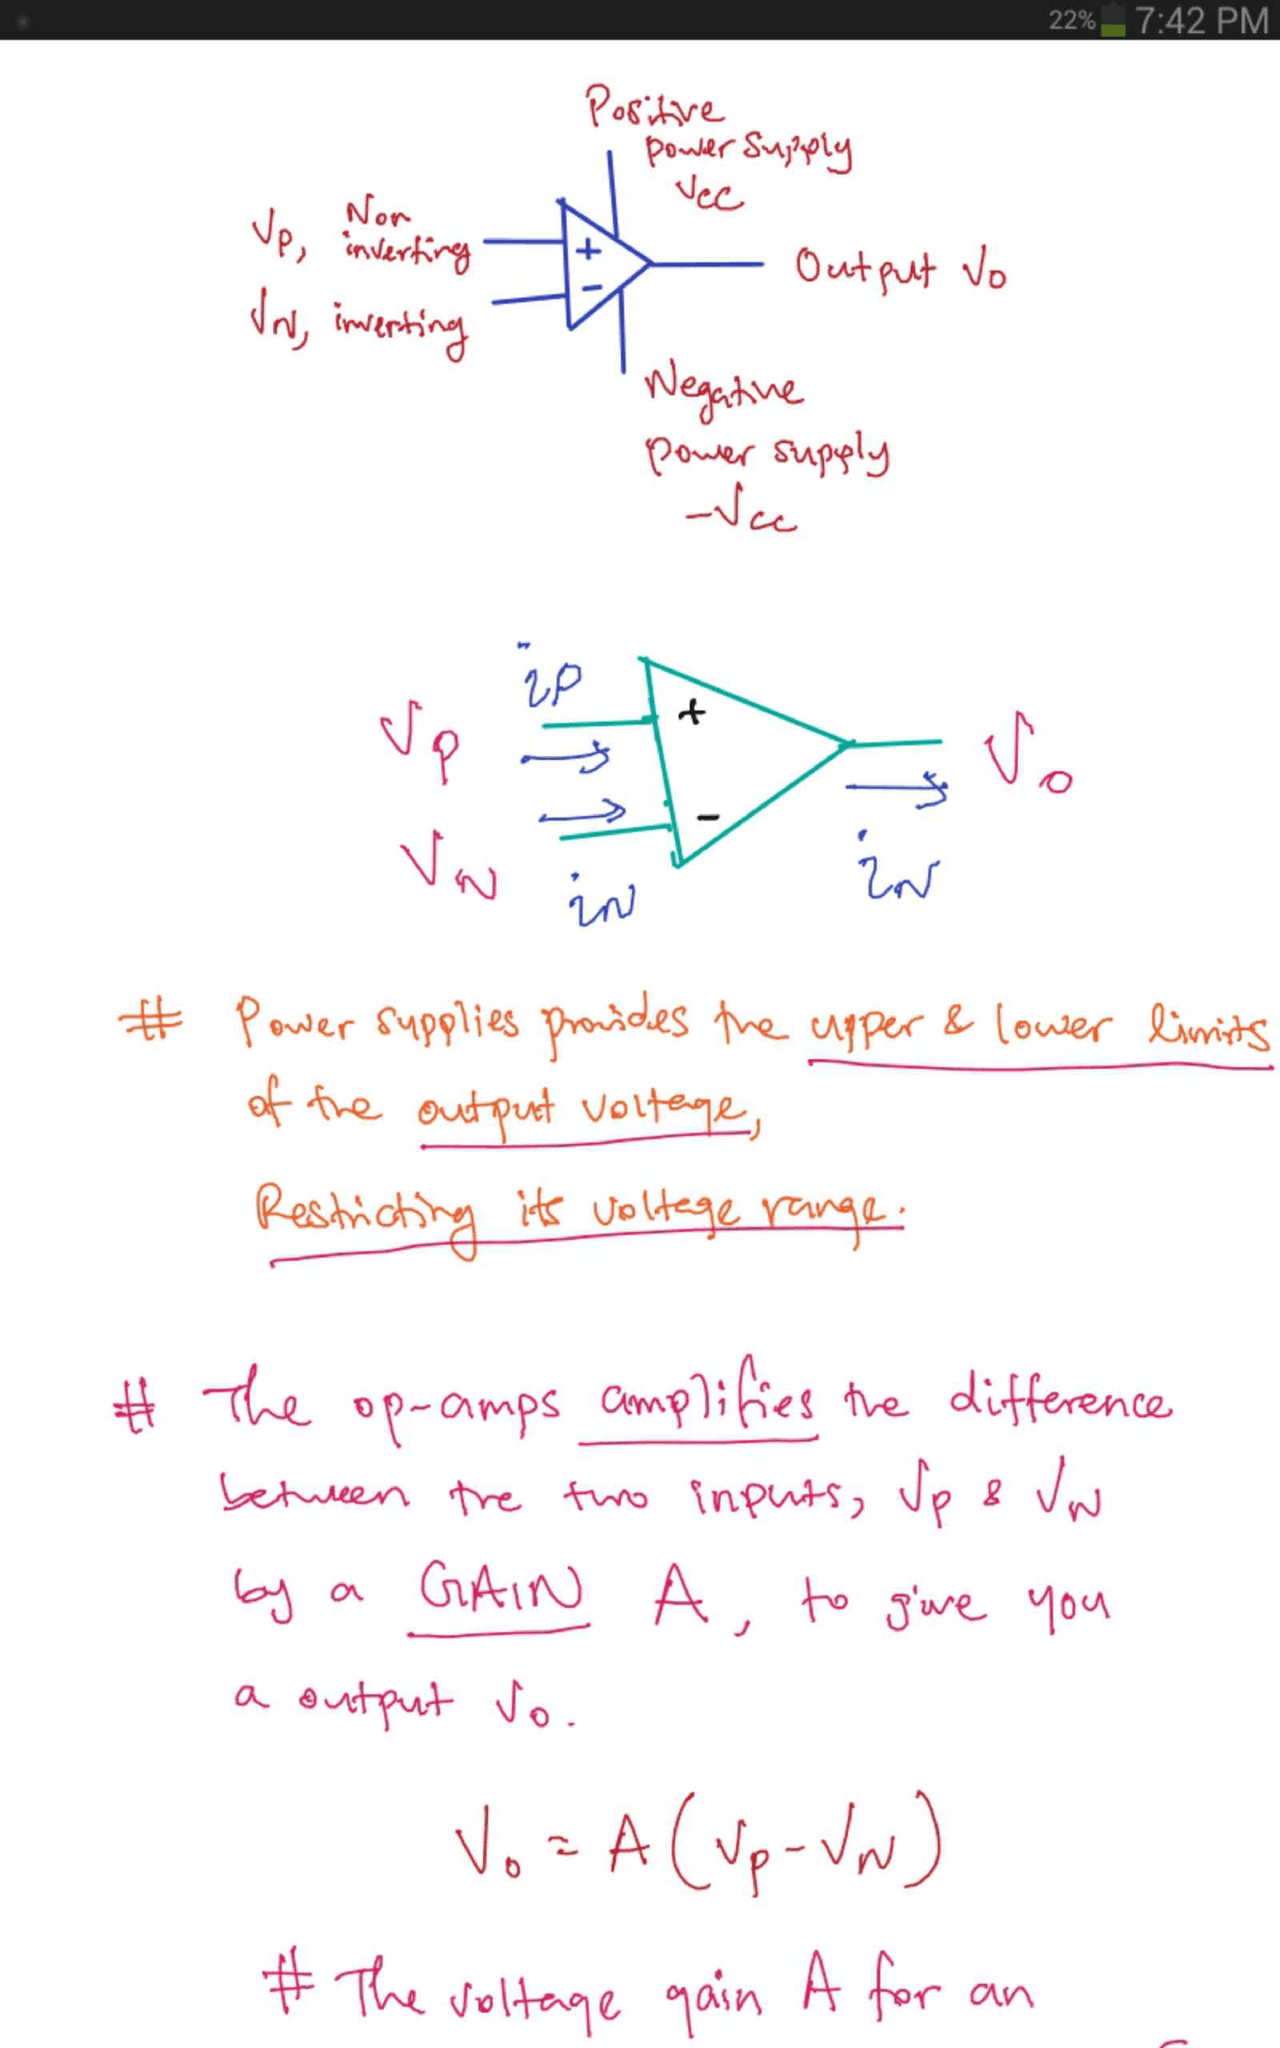 22% 7:42 PM
Positive
power supply
Vcc
Vp, Non
inverting
VN, inverting
+
-
Output Vo
Negative
power supply
-Vcc
ip
Vp
+
Vo
-
VN
iN
iN
# Power supplies provides the upper & lower limits
of the output voltage,
Restricting its voltage range.
# The op-amps amplifies the difference
between the two inputs, Vp & VN
by a GAIN A, to give you
a output Vo.
Vo = A(Vp-VN)
# The voltage gain A for an